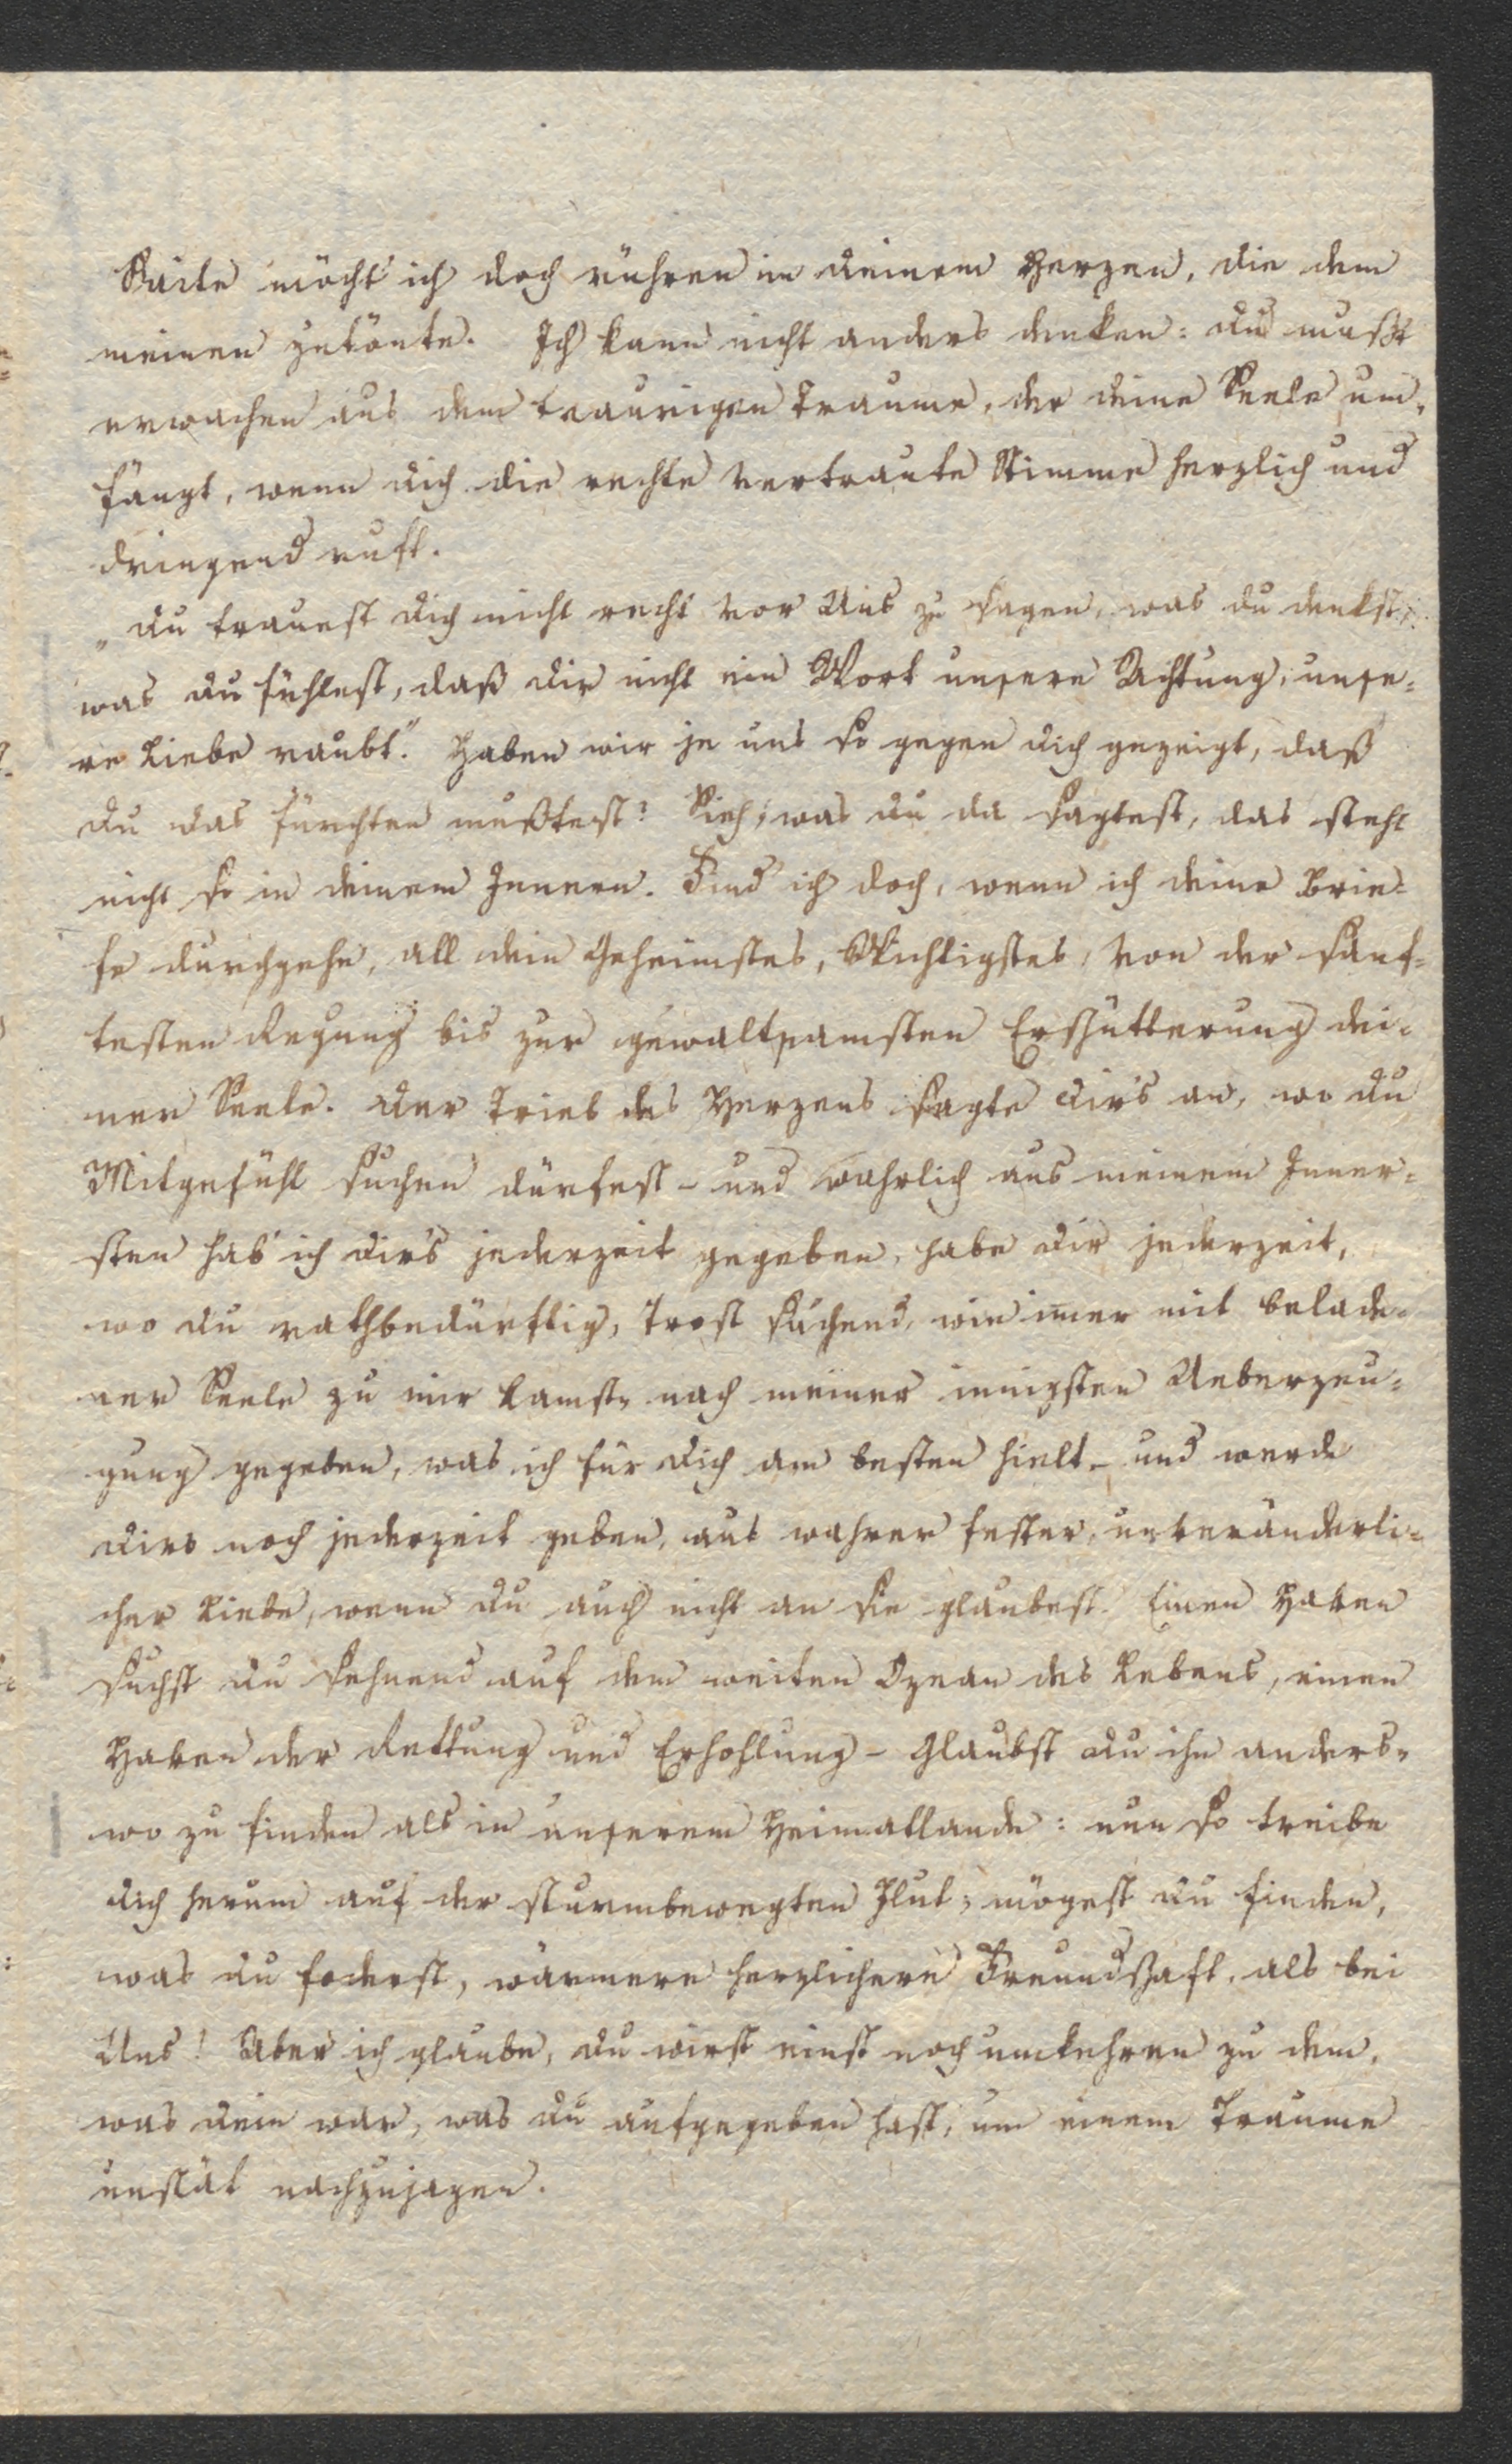 Saite möcht' ich doch rühren in deinem Herzen, die dem
meinen zutönte. Ich kann nicht anders denken: du mußt
erwachen aus dem traurigen Traume, der deine Seele um-
fängt, wenn dich die rechte vertraute Stimme herzlich und
dringend ruft.
„Du trauest dich nicht recht vor Uns zu sagen, was du denkst,
was du fühlest, daß dir nicht ein Wort unsere Achtung, unse-
re Liebe raubt." Haben wir je uns so gegen dich gezeigt, daß
du das fürchten mußtest? Sieh, was du da sagtest, das steht
nicht so in deinem Innern. Find' ich doch, wenn ich deine Brie-
fe durchgehe, all dein Geheimstes, Wichtigstes, von der sanf-
testen Regung bis zur gewaltsamsten Erschütterung dei-
ner Seele. Der Trieb des Herzens sagte dir's an, wo du
Mitgefühl suchen dürfest – und wahrlich aus meinem Inner-
sten hab' ich dir's jederzeit gegeben, habe dir jederzeit,
wo du rathbedürftig, Trost suchend, wie immer mit belade-
ner Seele zu mir kamst, nach meiner innigsten Ueberzeu-
gung gegeben, was ich für dich am besten hielt – und werde
dirs noch jederzeit geben, aus wahrer fester, unveränderli-
cher Liebe, wenn du auch nicht an sie glaubest. Einen Haven
suchst du sehnend auf dem weiten Ozean des Lebens, einen
Haven der Rettung und Erhohlung – Glaubst du ihn anders-
wo zu finden als in unserem Heimatlande: nun so treibe
dich herum auf der sturmbewegten Flut; mögest du finden,
was du foderst, wärmere herzlichere Freundschaft, als bei
Uns! Aber ich glaube, du wirst einst noch umkehren zu dem,
was dein war, was du aufgegeben hast, um einem Traume
unstät nachzujagen.